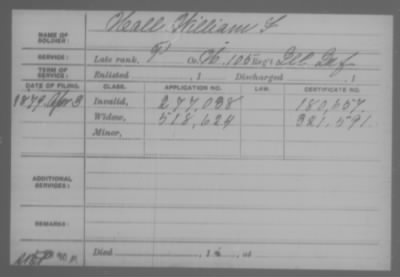 Hall William S
NAME OF SOLDIER:
SERVICE: Late rank, P Co. H, 105 Reg't Ill Inf
TERM OF SERVICE: Enlisted , 1 Discharged , 1
DATE OF FILING. CLASS. APPLICATION NO. LAW. CERTIFICATE NO.
1879 Apr 3 Invalid, 277,038 180,657.
Widow, 518,624 321,591.
Minor,
ADDITIONAL SERVICES:
REMARKS:
Died , 1 , at